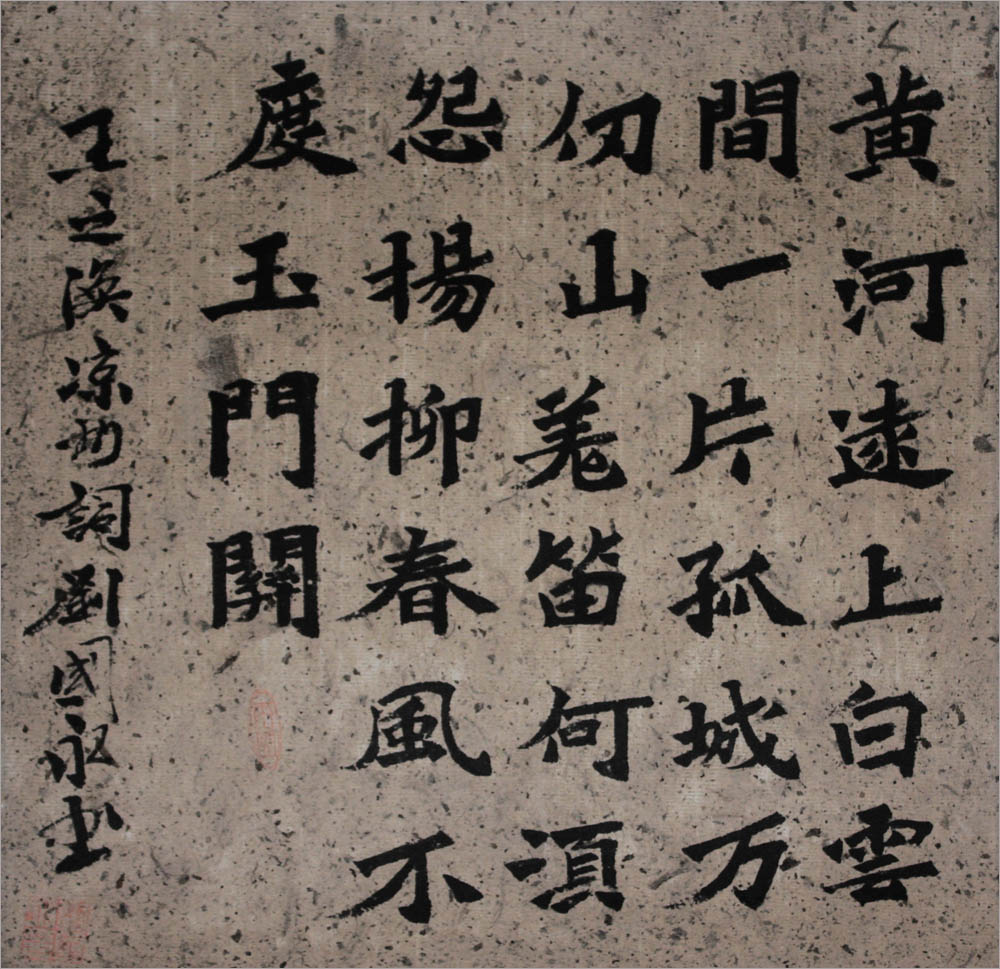 黄河遠上白雲
間一片孤城万
仞山羌笛何須
怨揚柳春風不
度玉門關
王之渙凉州詞劉國永书